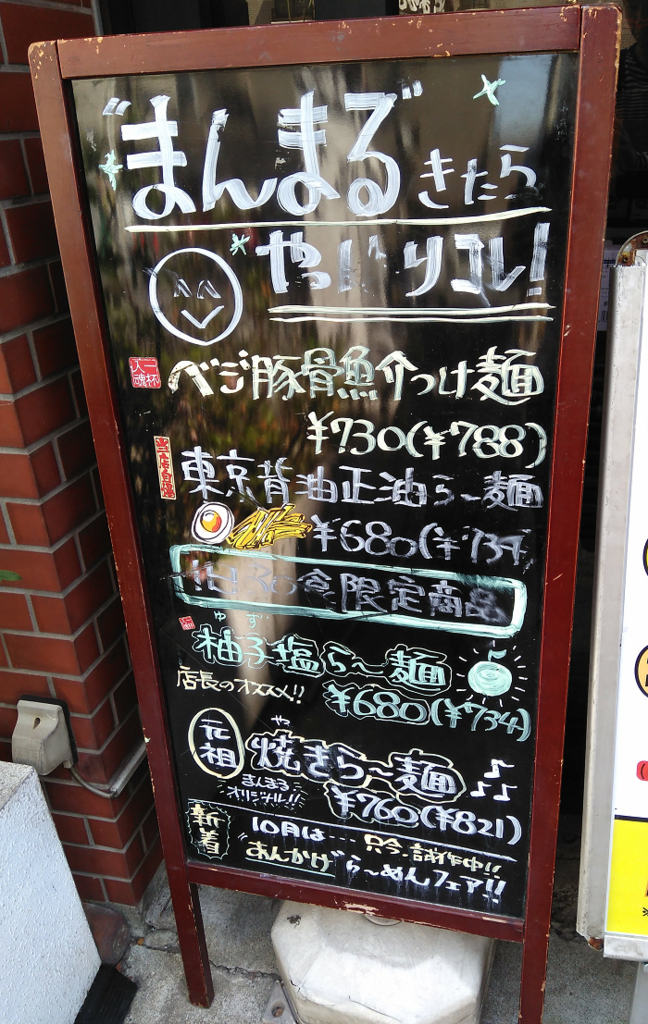 "まんまる"きたら
やっぱりコレ!
一杯入魂
ベジ豚骨魚介つけ麺
¥730(¥788)
東京背油正油ら〜麺
¥680(¥734
限定商品
ゆず
柚子塩ら〜麺
店長のオススメ!!
¥680(¥734)
元祖
や
焼きら〜麺
まんまる
オリジナル!!
¥760(¥821)
新着
10月は… 只今試作中!!
"あんかけ"ら〜めんフェア!!